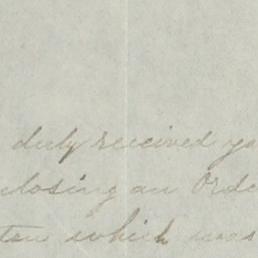 duly received yo
closing an Orde
ten which was